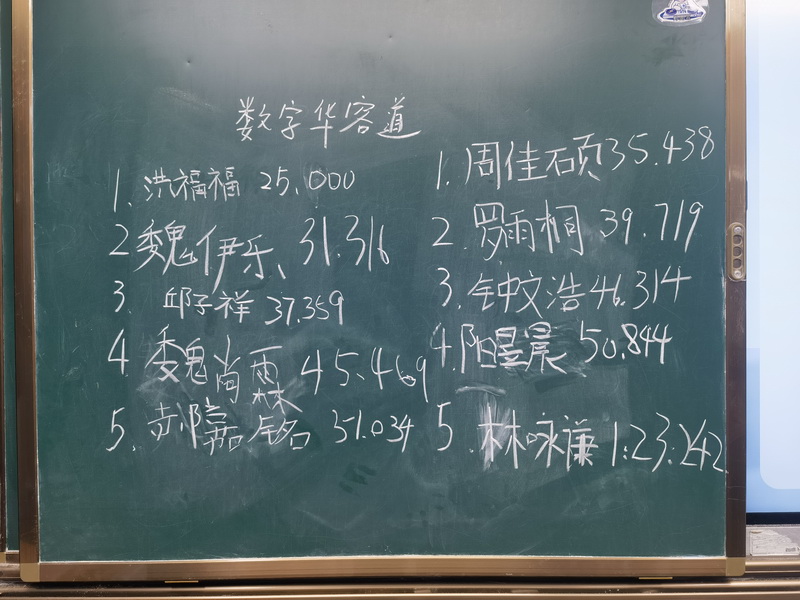 数字华容道
1. 洪福福 25.000
2 魏伊乐 31.316
3. 邱子祥 37.359
4 魏尚霖 45.469
5. 郝嘉铭 51.034
1. 周佳硕 35.438
2. 罗雨桐 39.719
3. 钟文浩 46.314
4. 阳昱晨 50.844
5. 林咏謙 1:23.242